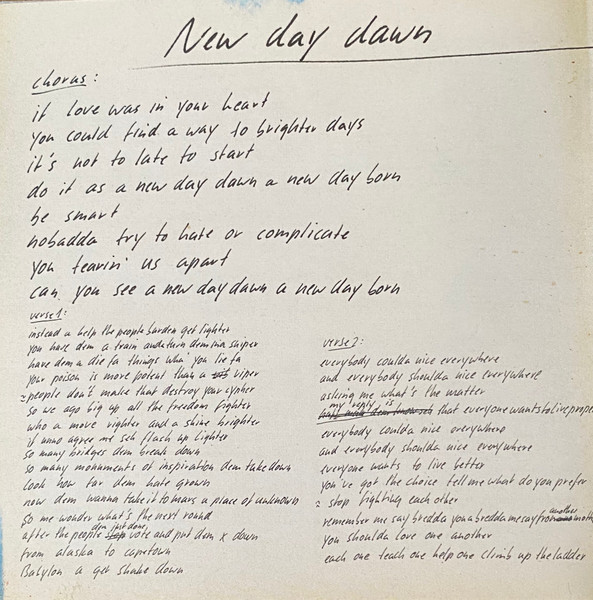 New day dawn
chorus:
if love was in your heart
you could find a way to brighter days
it's not to late to start
do it as a new day dawn a new day born
be smart
nobadda try to hate or complicate
you tearin' us apart
can you see a new day dawn a new day born
verse 1:
instead a help the people burden get lighter
you have dem a train and a turn dem ina sniper
have dem a die fa things wha' you lie fa
your poison is more potent than a viper
people don't make that destroy your cypher
so we ago big up all the freedom fighter
who a move righter and a shine brighter
if unno agree me seh flash up lighter
so many bridges dem break down
so many monuments of inspiration dem take down
look how far dem hate grown
now dem wanna take it to mars a place of unknown
so me wonder what's the next round
after the people dem just done vote and put dem x down
from alaska to capetown
Babylon a get shake down
verse 2:
everybody coulda nice everywhere
and everybody shoulda nice everywhere
asking me what's the matter
my reply is that everyone wants to live proper
everybody coulda nice everywhere
and everybody shoulda nice everywhere
everyone wants to live better
you've got the choice tell me what do you prefer
stop fighting each other
remember me say bredda you a bredda me say from another
you shoulda love one another
each one teach one help one climb up the ladder